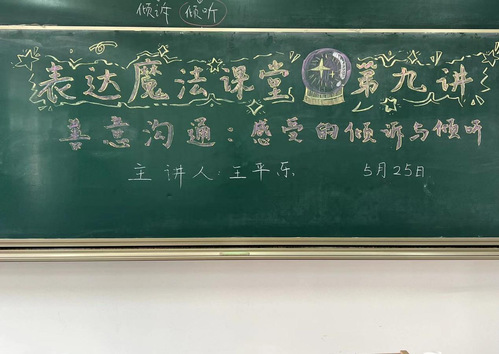 倾诉 倾听
表达魔法课堂 第九讲
善意沟通：感受的倾诉与倾听
主讲人：王平乐 5月25日